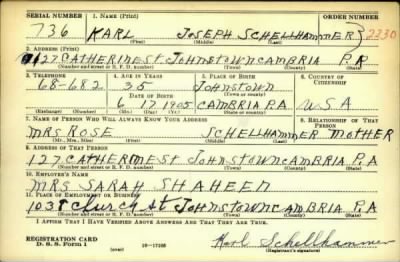 SERIAL NUMBER 1. NAME (Print) ORDER NUMBER
736 KARL JOSEPH SCHELLHAMMER 2330
(First) (Middle) (Last)
2. ADDRESS (Print)
127 CATHERINE ST JOHNSTOWN CAMBRIA P.A
(Number and street or R. F. D. number) (Town) (County) (State)
3. TELEPHONE 4. AGE IN YEARS 5. PLACE OF BIRTH 6. COUNTRY OF CITIZENSHIP
68-682 35 JOHNSTOWN
DATE OF BIRTH (Town or county)
6 17 1905 CAMBRIA P.A. U.S.A
(Exchange) (Number) (Mo.) (Day) (Yr.) (State or country)
7. NAME OF PERSON WHO WILL ALWAYS KNOW YOUR ADDRESS 8. RELATIONSHIP OF THAT PERSON
MRS ROSE SCHELLHAMMER MOTHER
(Mr., Mrs., Miss) (First) (Middle) (Last)
9. ADDRESS OF THAT PERSON
127 CATHERINE ST JOHNSTOWN CAMBRIA P.A
(Number and street or R. F. D. number) (Town) (County) (State)
10. EMPLOYER'S NAME
MRS SARAH SHAHEEN
11. PLACE OF EMPLOYMENT OR BUSINESS
103 St JOHNSTOWN CAMBRIA P.A
(Number and street or R. F. D. number) (Town) (County) (State)
I AFFIRM THAT I HAVE VERIFIED ABOVE ANSWERS AND THAT THEY ARE TRUE.
REGISTRATION CARD
D. S. S. Form 1 (over) 16-17105 Karl Schellhammer
(Registrant's signature)